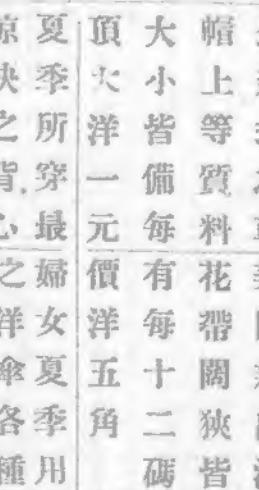 帽上等質料
大小皆備每
頂大洋一元
夏季所穿最
涼快之背心
花帶闊狹皆
有每十二碼
價洋五角
婦女夏季用
之洋傘各種